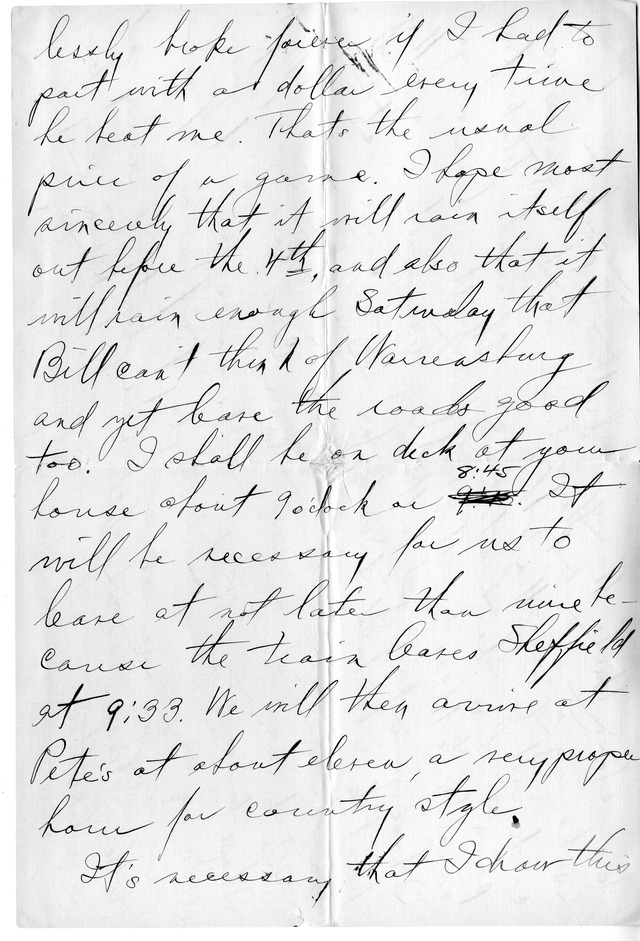 lessly broke forever if I had to
part with a dollar every time
he beat me. That's the usual
price of a game. I hope most
sincerely that it will rain itself
out before the 4th, and also that it
will rain enough Saturday that
Bill can't think of Warrensburg
and yet leave the roads good
too. I shall be on deck at your
8:45
house about 9 o'clock or 9:15. It
will be necessary for us to
leave at not later than nine be-
cause the train leaves Sheffield
at 9:33. We will then arrive at
Pete's at about eleven, a very proper
hour for country style.
It's necessary that I draw this